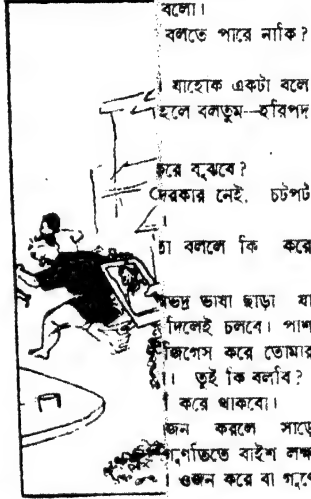 বলো।
বলতে পারে নাকি?
যাহোক একটা বলে
হলে বলতুম—হরিপদ
করে বুঝবে?
দরকার নেই. চটপট
তা বললে কি করে
অভদ্র ভাষা ছাড়া যা
দিলেই চলবে। পাশ
জিগেস করে তোমার
। তুই কি বলবি?
করে থাকবো।
ওজন করলে সাড়ে
গুণতিতে বাইশ লক্ষ
। ওজন করে বা গুণে